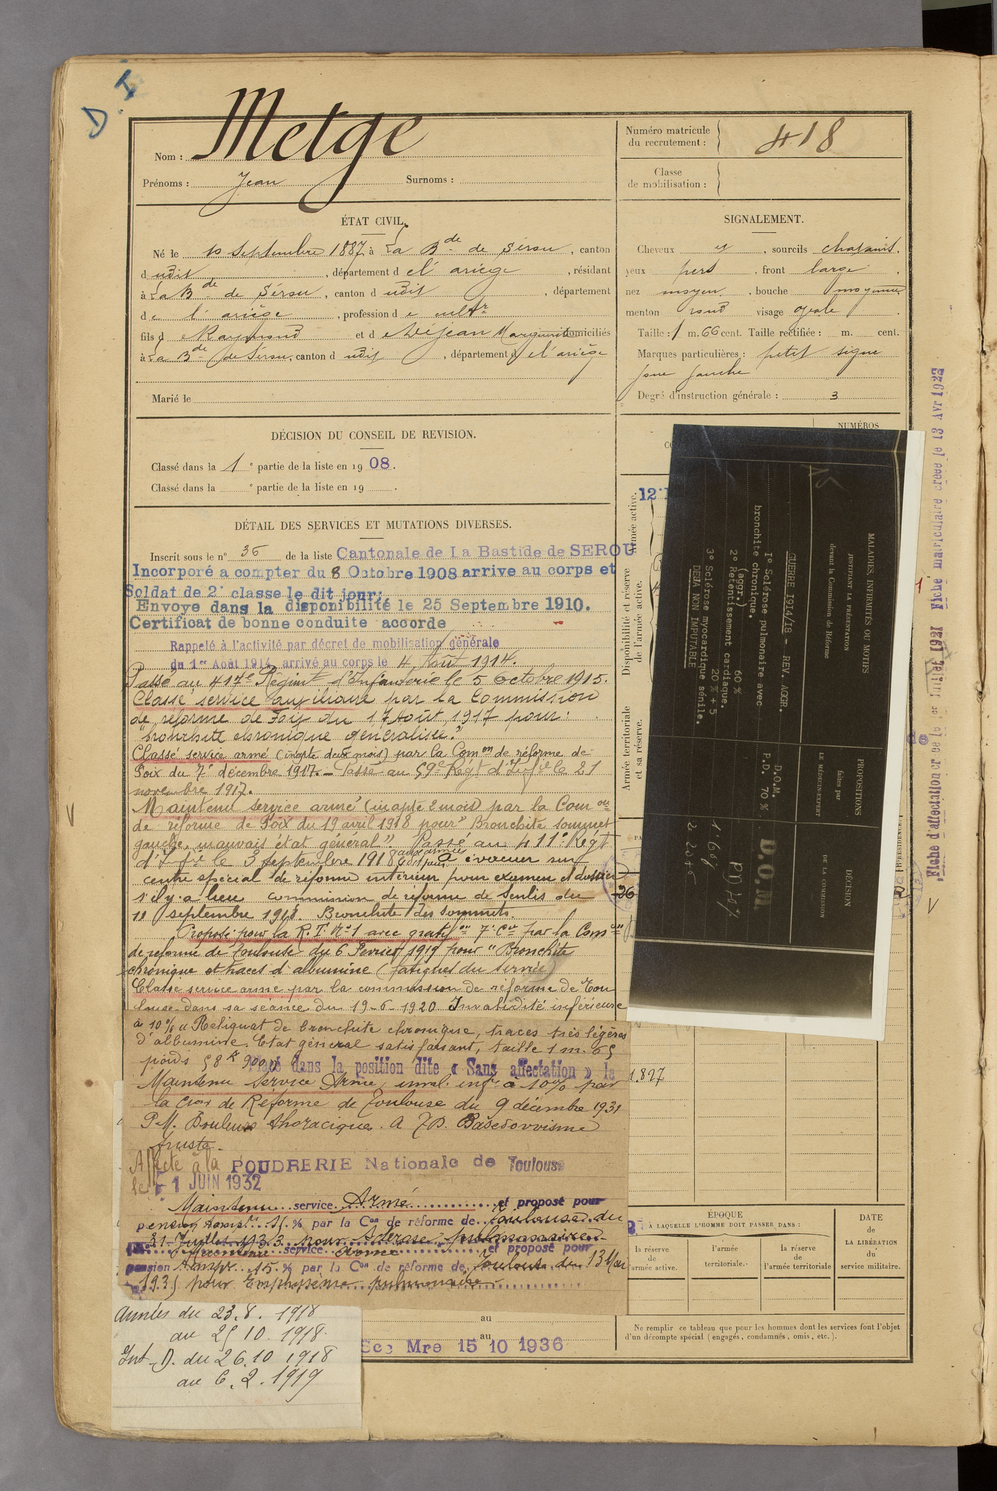 D. I
Nom : Metge
Prénoms : Jean Surnoms :
Numéro matricule du recrutement : 418
Classe de mobilisation :
ÉTAT CIVIL.
Né le 10 Septembre 1887, à La Bde de Sérou, canton
dudit, département de l'ariège, résidant
à La Bde de Sérou, canton dudit, département
de l'ariège, profession de cultr
fils de Raymond et de Dejean Marguerite domiciliés
à La Bde de Sérou, canton dudit, département de l'ariège
Marié le
SIGNALEMENT.
Cheveux et, sourcils chatains,
yeux pers, front large,
nez moyen, bouche moyenne
menton rond visage ovale
Taille : 1 m. 66 cent. Taille rectifiée : m. cent.
Marques particulières : petit signe
joue gauche
Degré d'instruction générale : 3
DÉCISION DU CONSEIL DE REVISION.
Classé dans la 1e partie de la liste en 1908.
Classé dans la e partie de la liste en 19 .
DÉTAIL DES SERVICES ET MUTATIONS DIVERSES.
Inscrit sous le n° 36 de la liste Cantonale de La Bastide de SEROU
Incorporé a compter du 8 Octobre 1908 arrive au corps et
Soldat de 2e classe le dit jour;
Envoye dans la disponibilité le 25 Septembre 1910.
Certificat de bonne conduite accorde
Rappelé à l'activité par décret de mobilisation générale
du 1er Août 1914, arrivé au corps le 4 Août 1914.
Passé au 417e Régiment d'Infanterie le 5 octobre 1915.
Classé service auxiliaire par la Commission
de réforme de Foix du 17 Août 1917 pour :
"bronchite chronique généralisée."
Classé service armé (inapte deux mois) par la Comon de réforme de
Foix du 7 décembre 1917. Passé au 59e Régt d'Infie le 21
novembre 1917.
Maintenu service armé (inapte 2 mois) par la Comon
de réforme de Foix du 19 avril 1918 pour "Bronchite sommet
gauche, mauvais état général". Passé au 411e Régt
d'Infie le 3 septembre 1918 A évacuer sur
centre spécial de réforme intérieur pour examen et dossier
s'il y a lieu commission de réforme de Senlis du
11 septembre 1918. Bronchite des sommets.
Proposé pour la R.T. N°1 avec gratifon 7e Cie par la Comon
de réforme de Toulouse du 6 Fevrier 1919 pour "Bronchite
chronique et traces d'albumine (fatigues du service)
Classé service armé par la commission de réforme de Tou
louse dans sa séance du 19-6-1920 Invalidité inférieure
à 10% "Reliquat de bronchite chronique, traces très légères
d'albumine. Etat général satisfaisant, taille 1 m. 65
poids 58k 900
Placé dans la position dite « Sans affectation » la
Maintenu service Armé, inval. infre à 10% par
la Cion de Réforme de Toulouse du 9 décembre 1931
P.M. Douleurs thoraciques. A.P.D. Basedowisme
fruste.
Affecté à la POUDRERIE Nationale de Toulouse
le 1 JUIN 1932
Maintenu service Armé et proposé pour
pension par la Con de réforme de Toulouse du
31 Juillet 1933 pour Sclérose pulmonaire
Maintenu service armé et proposé pour
pension temp. 15 % par la Con de réforme de Toulouse du 13 Mai
1935 pour Emphysème pulmonaire
Armées du 23.8.1918
au 25 10. 1918
Int. D. du 26.10 1918
au 6.2.1919
au
au
Sec Mre 15 10 1936
NUMÉROS
12
Armée active.
Disponibilité et réserve de l'armée active.
Armée territoriale et sa réserve.
26
1.827
MALADIES, INFIRMITÉS OU MOTIFS
JUSTIFIANT LA PRÉSENTATION
devant la Commission de Réforme
PROPOSITIONS
faites par
LE MÉDECIN-EXPERT
DÉCISION
DE LA COMMISSION
GUERRE 1914/18 - REV. AGGR.
1° Sclérose pulmonaire avec
bronchite chronique.
(aggr.) 60 %
2° Retentissement cardiaque.
20 % + 5
3° Sclérose myocardique sénile.
DEGA NON IMPUTABLE
D.O.M.
P.D. 70 %
D.O.M.
P.D. 70%
1° 60%
2° 20 + 5
ÉPOQUE
À LAQUELLE L'HOMME DOIT PASSER DANS :
la réserve de l'armée active.
l'armée territoriale.
la réserve de l'armée territoriale
DATE de LA LIBÉRATION du service militaire.
Ne remplir ce tableau que pour les hommes dont les services font l'objet
d'un décompte spécial (engagés, condamnés, omis, etc.).
Fiche matriculaire créée le 13 Avr 1923
Fiche d'affectation créée le Juillet 1921